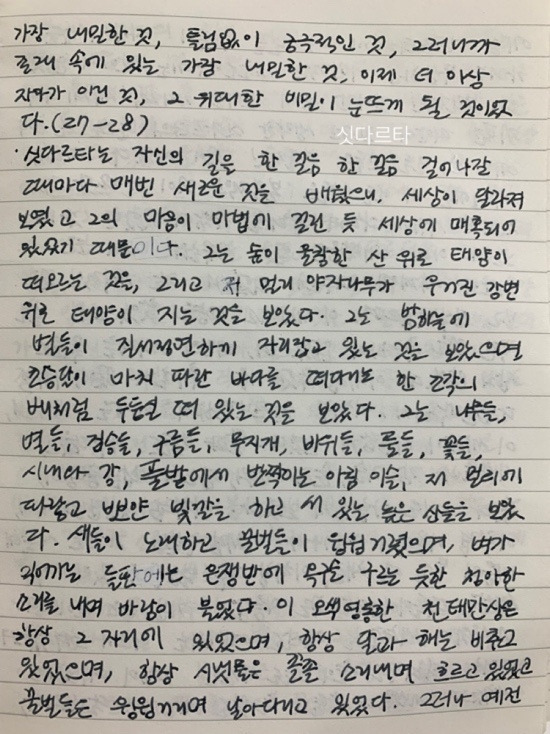 가장 내밀한 것, 틀림없이 궁극적인 것, 그러니까
존재 속에 있는 가장 내밀한 것, 이제 더 이상
자아가 아닌 것, 그 위대한 비밀이 눈뜨게 될 것이었
다.(27-28)
싯다르타
· 싯다르타는 자신의 길을 한 걸음 한 걸음 걸어나갈
때마다 매번 새로운 것을 배웠으니, 세상이 달라져
보였고 그의 마음이 마법에 걸린 듯 세상에 매혹되어
있었기 때문이다. 그는 숲이 울창한 산 위로 태양이
떠오르는 것을, 그리고 저 멀리 야자나무가 우거진 강변
위로 태양이 지는 것을 보았다. 그는 밤하늘에
별들이 질서정연하게 자리잡고 있는 것을 보았으며
초승달이 마치 파란 바다를 떠다니는 한 조각의
배처럼 두둥실 떠 있는 것을 보았다. 그는 나무들,
별들, 짐승들, 구름들, 무지개, 바위들, 풀들, 꽃들,
시내와 강, 풀밭에서 반짝이는 아침 이슬, 저 멀리에
파랗고 뽀얀 빛깔을 하고 서 있는 높은 산들을 보았
다. 새들이 노래하고 꿀벌들이 윙윙거렸으며, 벼가
익어가는 들판에는 은쟁반에 옥구슬 구르는 듯한 청아한
소리를 내며 바람이 불었다. 이 오색영롱한 천태만상은
항상 그 자리에 있었으며, 항상 달과 해는 비추고
있었으며, 항상 시냇물은 졸졸 소리내며 흐르고 있었고
꿀벌들은 윙윙거리며 날아다니고 있었다. 그러나 예전